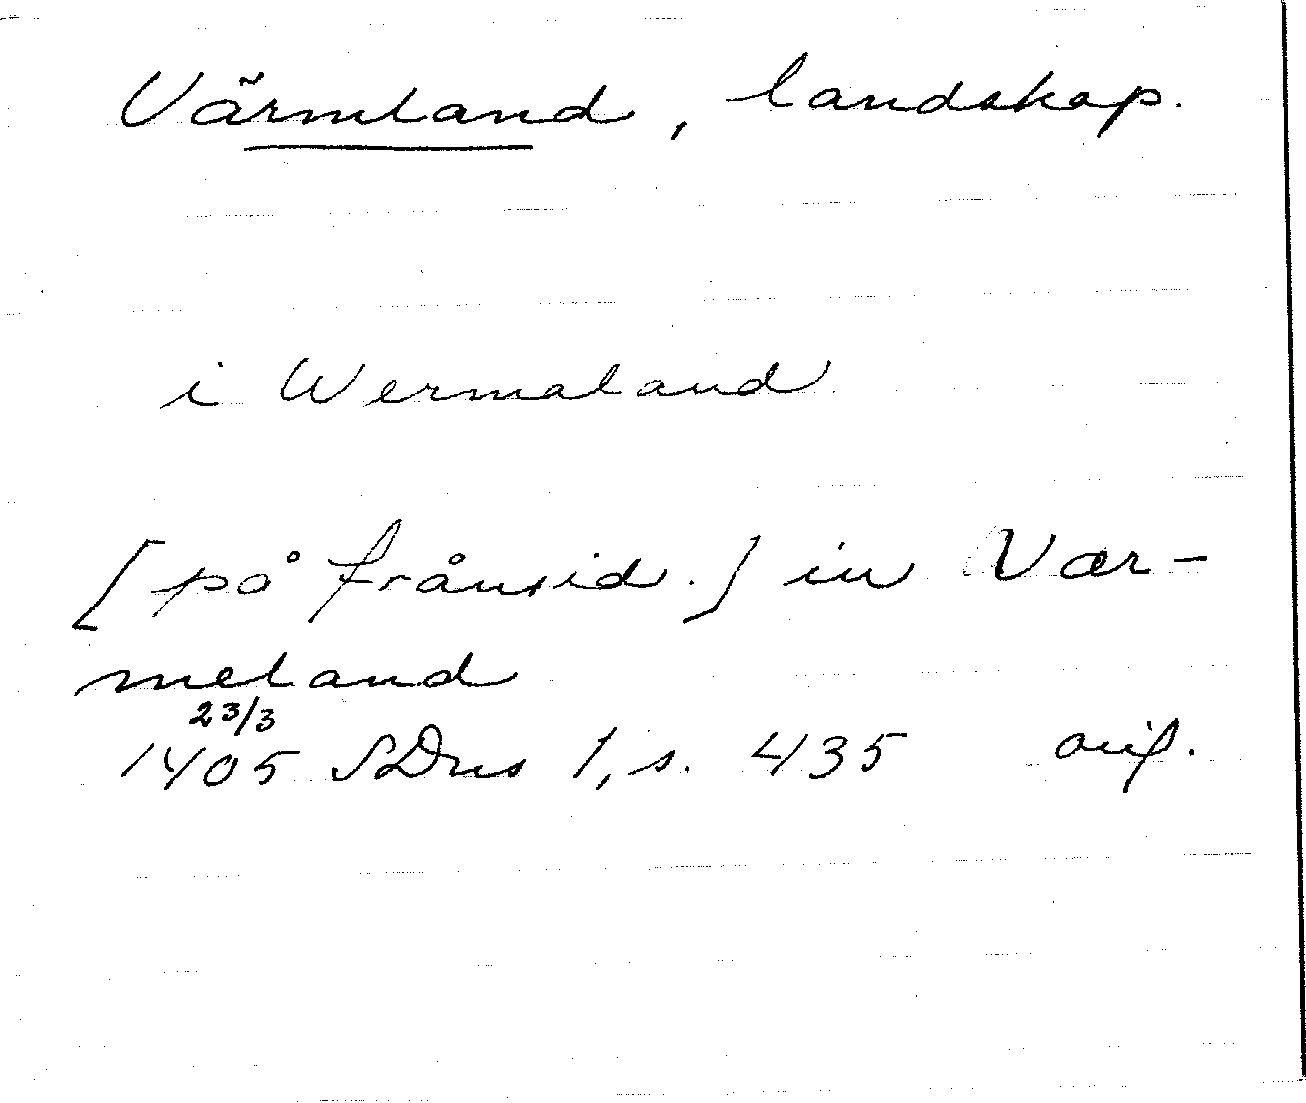 Värmland, landskap.
i Wermaland
[på frånsid.] in Vær-
meland
23/3
1405 SDns 1, s. 435 orig.